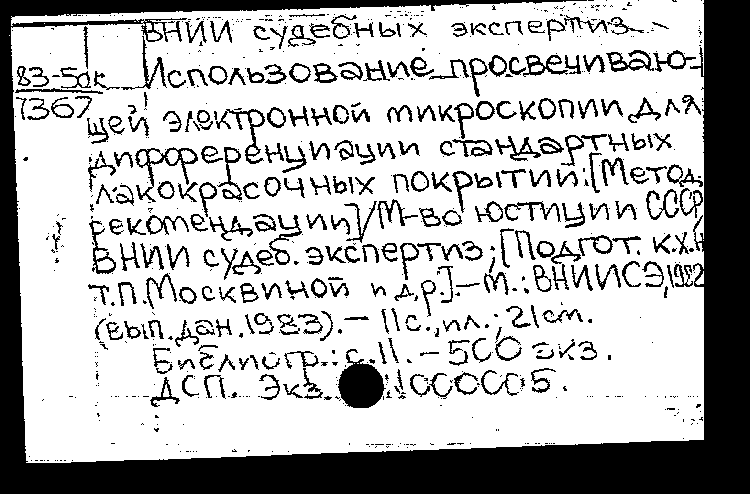 ВНИИ судебных экспертиз
83-5дк
Использование просвечиваю-
7367
щей электронной микроскопии для
дифференциации стандартных
лакокрасочных покрытий: [Метод.
рекомендации] / М-во юстиции СССР,
ВНИИ судеб. экспертиз; [Подгот. к.х.н
Т.П. Москвиной и др.]. — М.: ВНИИСЭ, 1982
(вып. дан. 1983). — 11 с., ил.; 21 см.
Библиогр.: с. 11. — 500 экз.
ДСП. Экз. 000005.